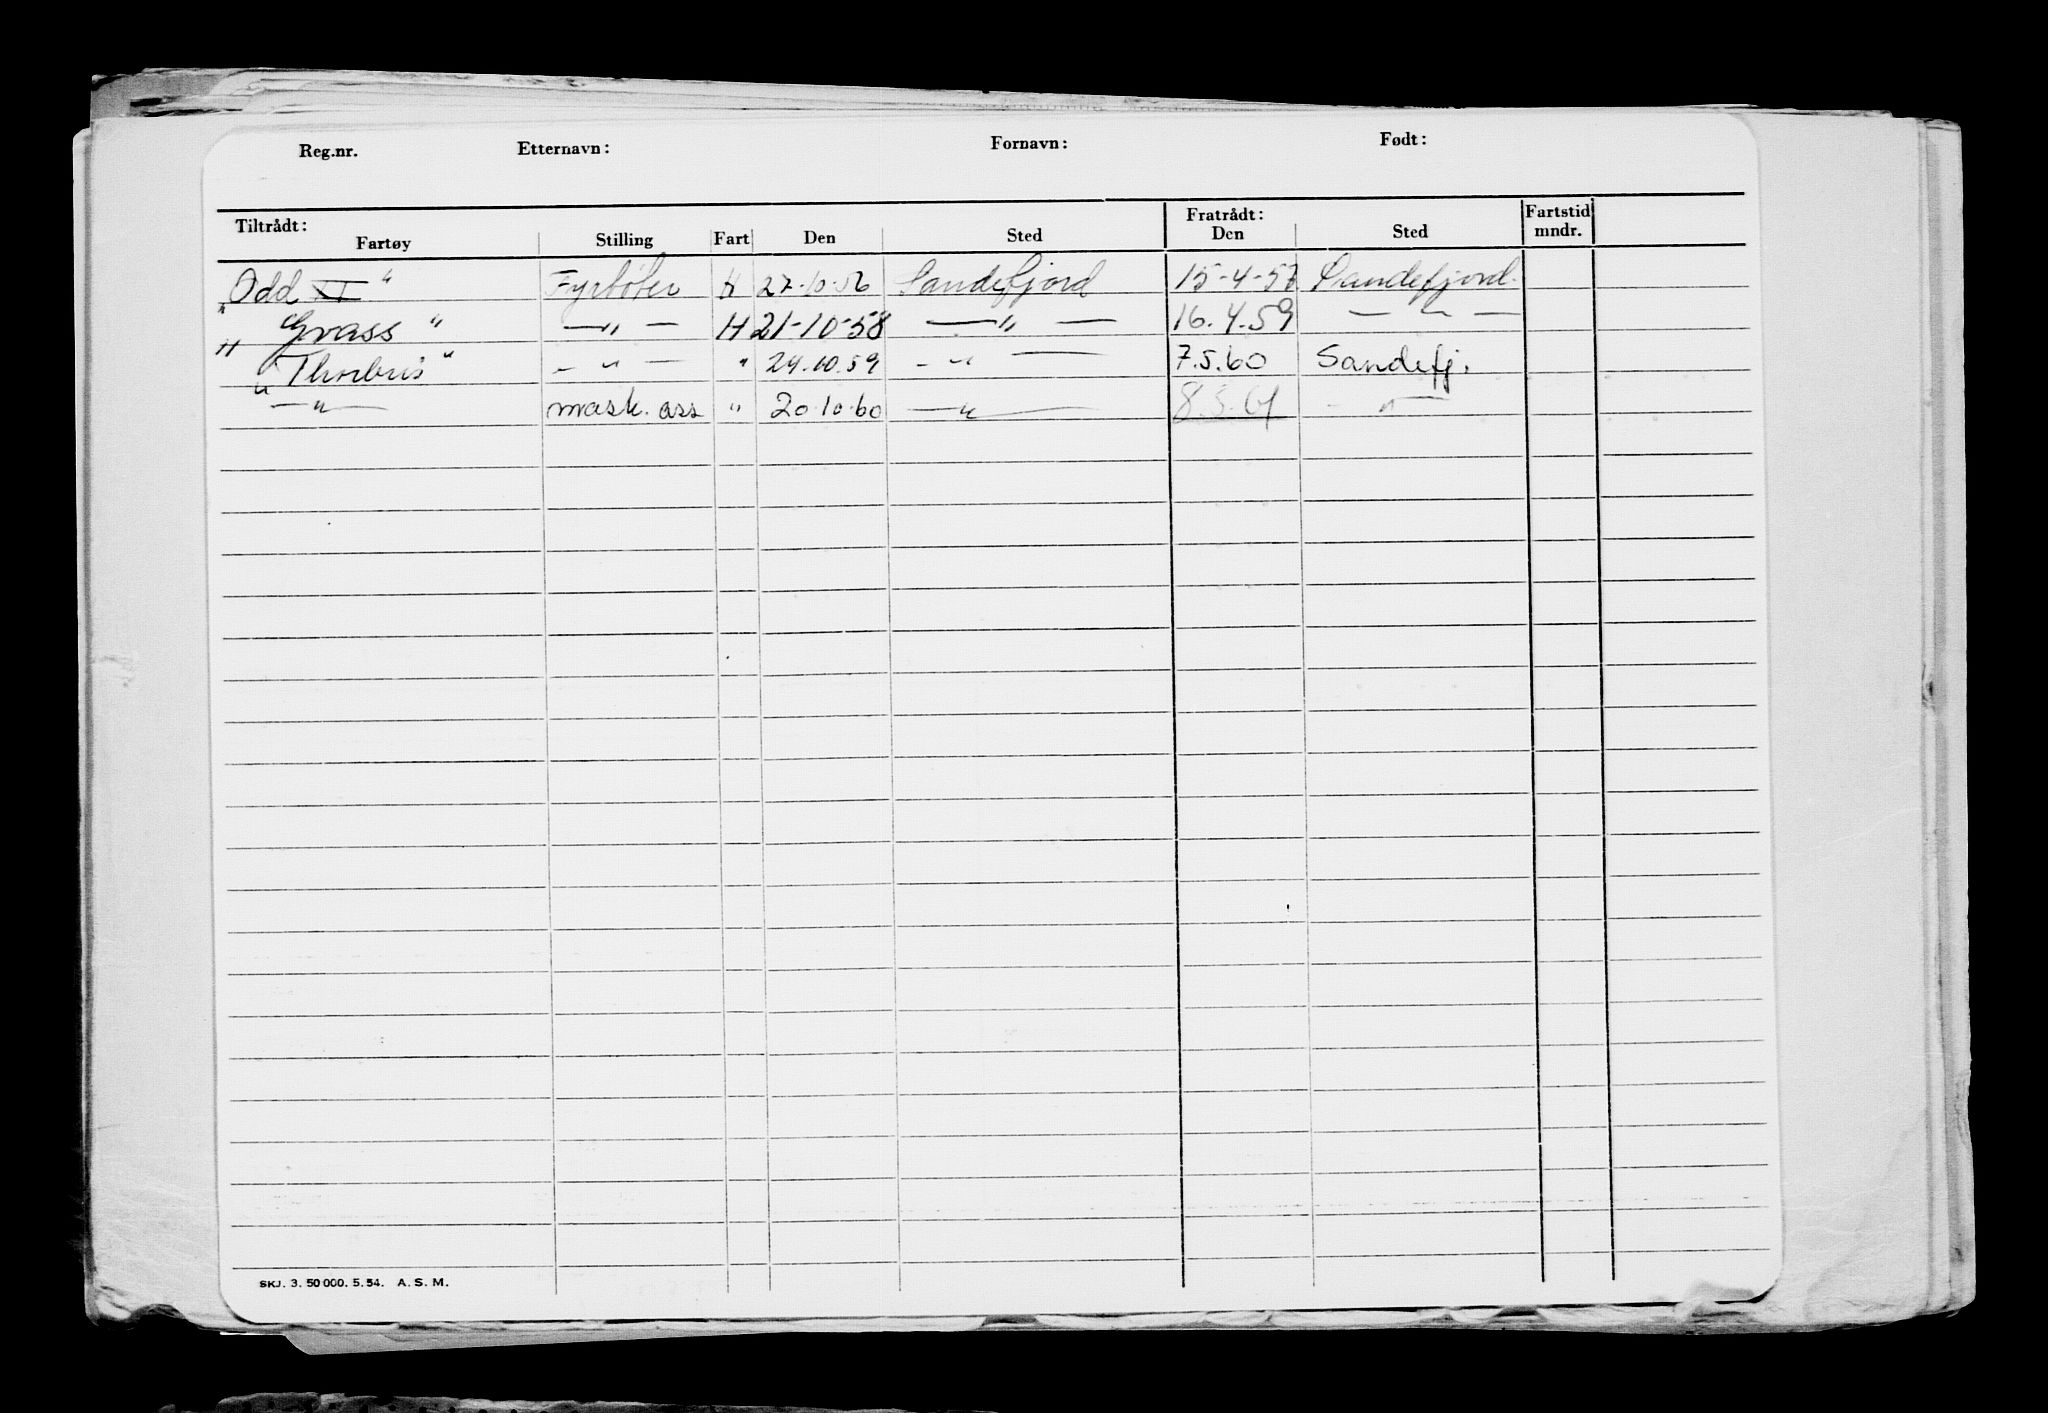 Reg.nr. Etternavn: Fornavn: Født:
Tiltrådt: Fratrådt: Fartstid
Fartøy Stilling Fart Den Sted Den Sted mndr.
„Odd XI" Fyrbøter H 27-10-56 Sandefjord 15-4-57 Sandefjord.
„ Gvass " —"— H 21-10-58 —"— 16.4.59 —"—
„Thorbris" —"— " 24.10.59 —"— 7.5.60 Sandefj.
—"— mask. ass " 20.10.60 —"— 8.5.61 —"—
SKJ. 3. 50 000. 5. 54. A. S. M.